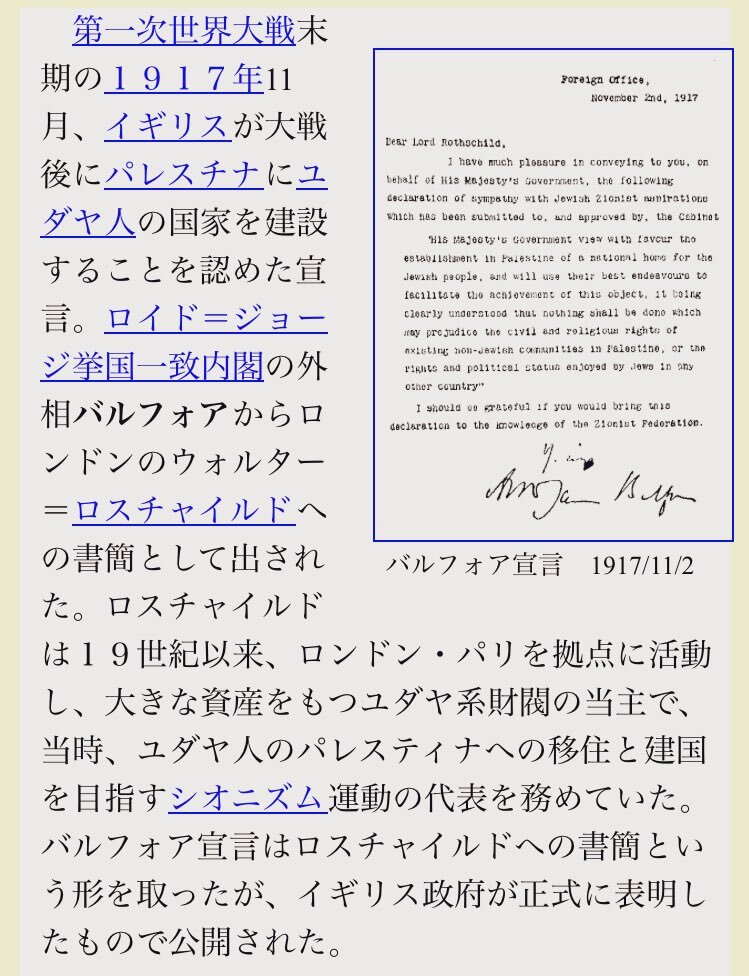 第一次世界大戦末
期の１９１７年11
月、イギリスが大戦
後にパレスチナにユ
ダヤ人の国家を建設
することを認めた宣
言。ロイド＝ジョー
ジ挙国一致内閣の外
相バルフォアからロ
ンドンのウォルター
＝ロスチャイルドへ
の書簡として出され
た。ロスチャイルド
は１９世紀以来、ロンドン・パリを拠点に活動
し、大きな資産をもつユダヤ系財閥の当主で、
当時、ユダヤ人のパレスティナへの移住と建国
を目指すシオニズム運動の代表を務めていた。
バルフォア宣言はロスチャイルドへの書簡とい
う形を取ったが、イギリス政府が正式に表明し
たもので公開された。
Foreign Office,
November 2nd, 1917
Dear Lord Rothschild,
I have much pleasure in conveying to you, on
behalf of His Majesty's Government, the following
declaration of sympathy with Jewish Zionist aspirations
which has been submitted to, and approved by, the Cabinet
"His Majesty's Government view with favour the
establishment in Palestine of a national home for the
Jewish people, and will use their best endeavours to
facilitate the achievement of this object, it being
clearly understood that nothing shall be done which
may prejudice the civil and religious rights of
existing non-Jewish communities in Palestine, or the
rights and political status enjoyed by Jews in any
other country"
I should be grateful if you would bring this
declaration to the knowledge of the Zionist Federation.
バルフォア宣言　1917/11/2